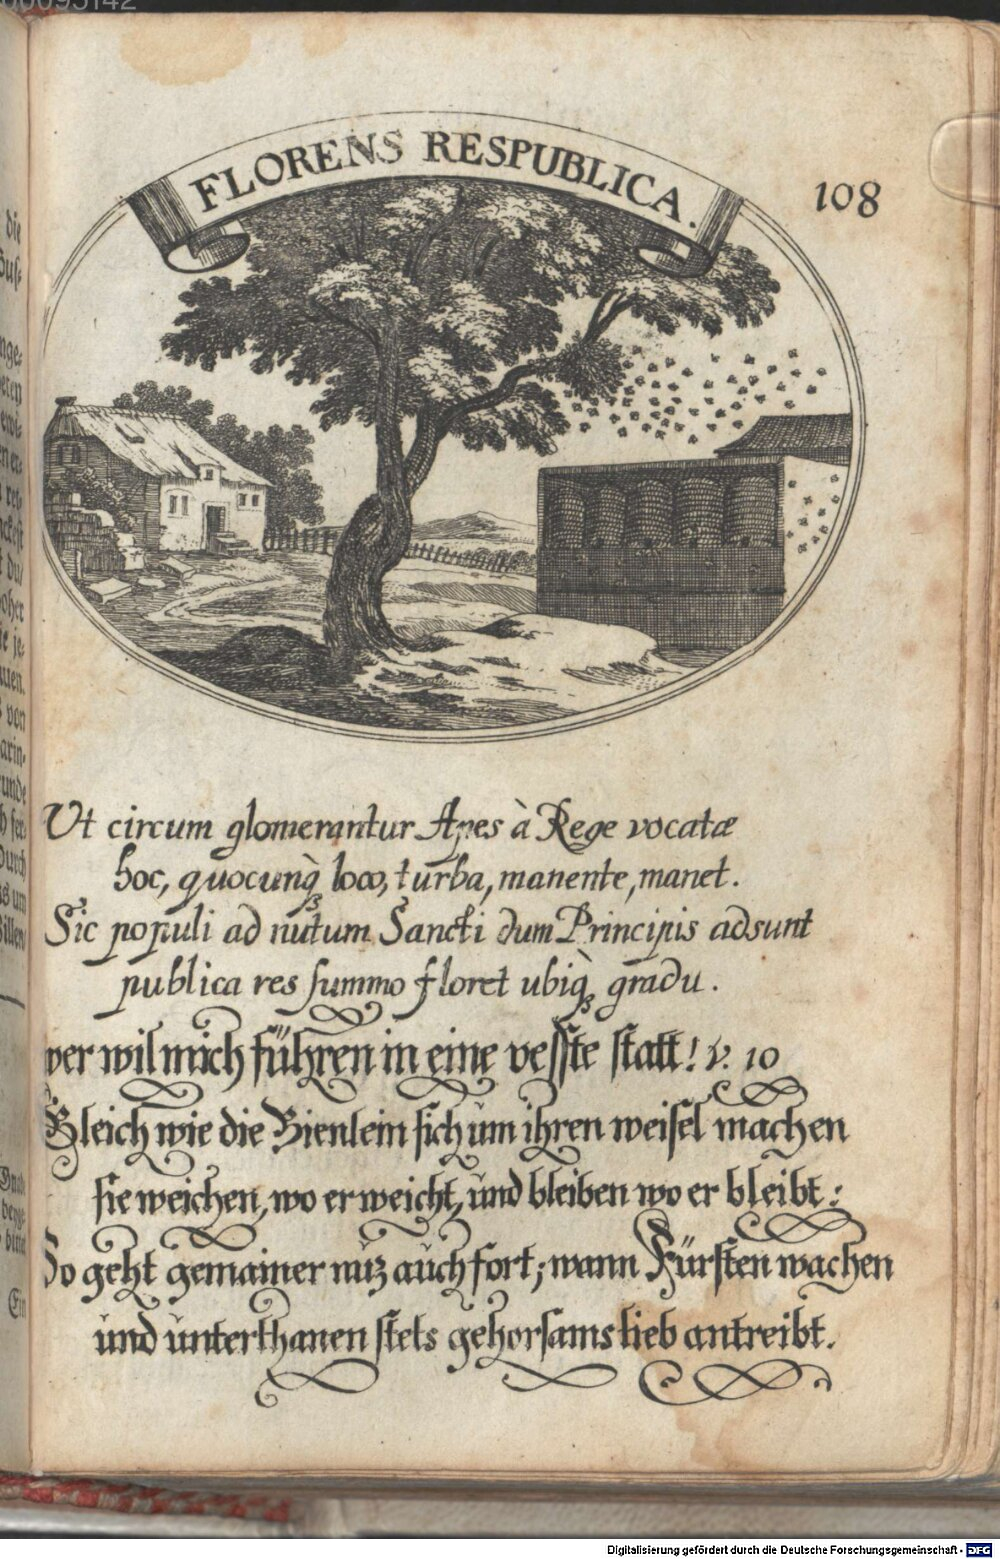 FLORENS RESPUBLICA.
108
Ut circum glomerantur Apes à Rege vocatæ
hoc, quocunq̀ꝫ loco, turba, manente, manet.
Sic populi ad nutum Sancti dum Principis adsunt
publica res summo floret ubiq̀ꝫ gradu.
wer wil mich führen in eine vesste statt! v. 10
Gleich wie die Bienlein sich um ihren weisel machen
sie weichen, wo er weicht, und bleiben wo er bleibt:
So geht gemainer nuz auch fort; wann Fürsten wachen
und unterthanen stets gehorsams lieb antreibt.
Digitalisierung gefördert durch die Deutsche Forschungsgemeinschaft - DFG